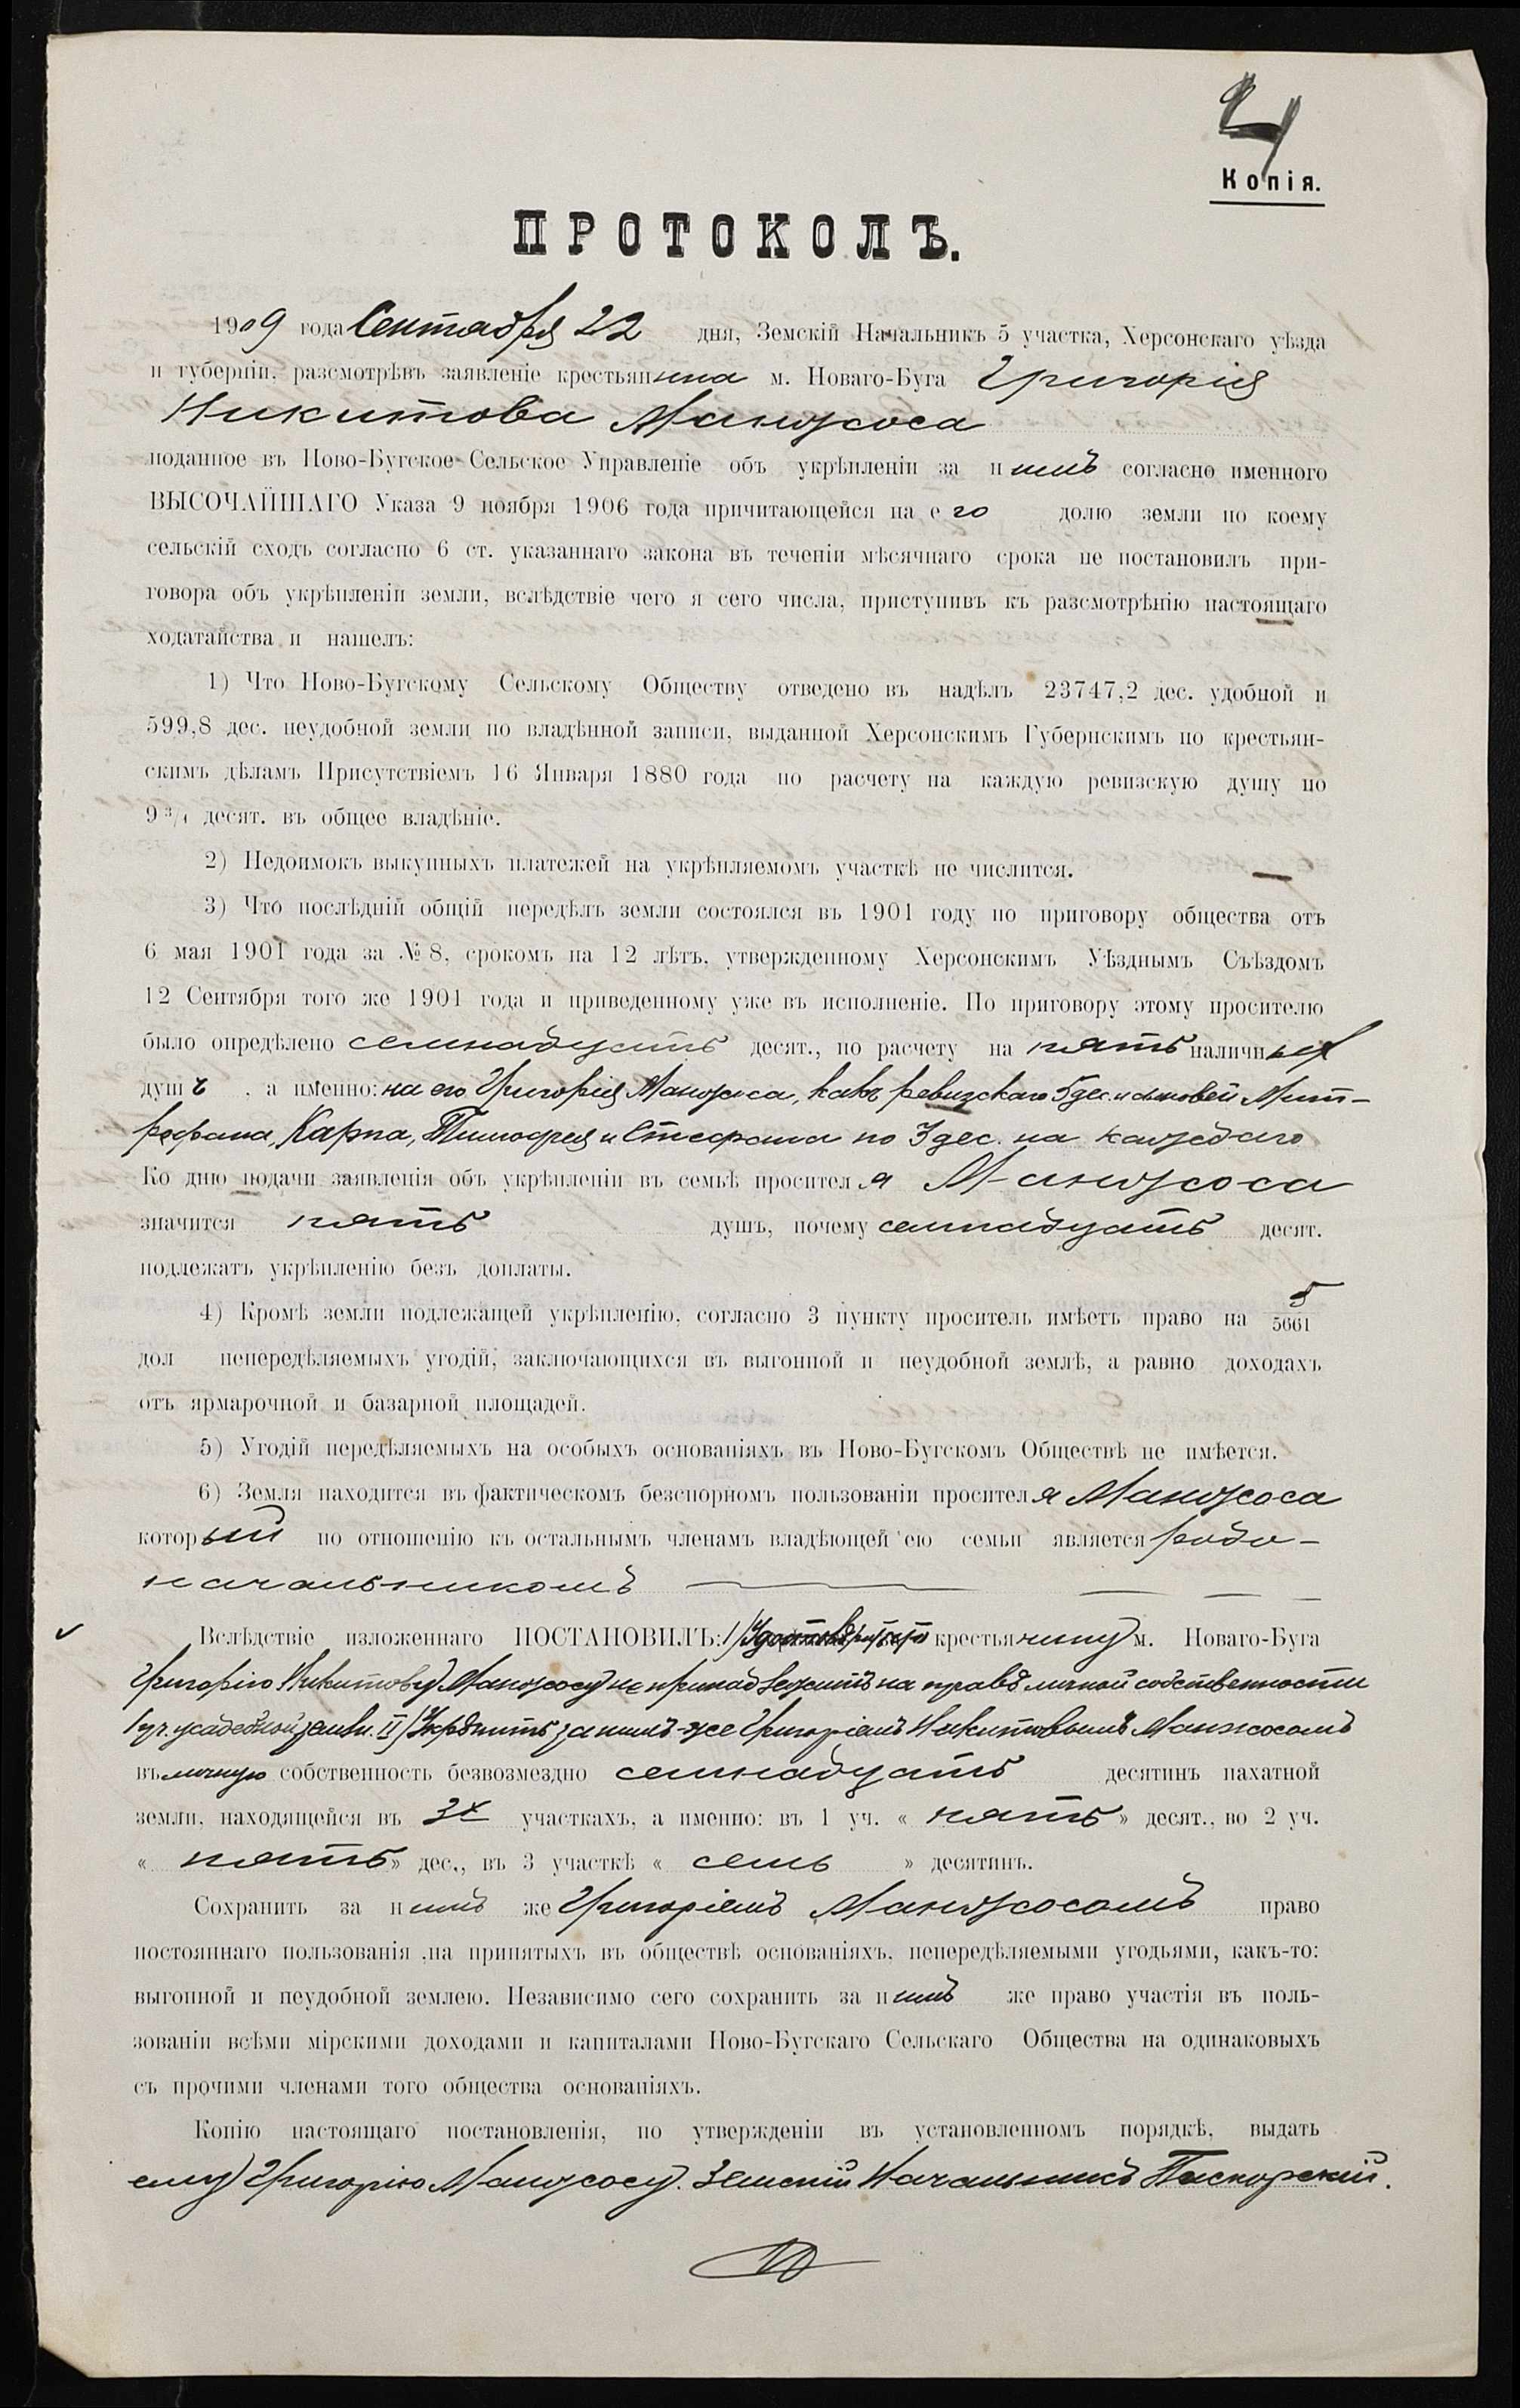 4
Копія.
ПРОТОКОЛЪ.
1909 года Сентября 22 дня, Земскій Начальникъ 5 участка, Херсонскаго уѣзда
и губерніи, разсмотрѣвъ заявленіе крестьянина м. Новаго-Буга Григорія
Никитова Манжоса
поданное въ Ново-Бугское Сельское Управленіе объ укрѣпленіи за нимъ согласно именного
ВЫСОЧАЙШАГО Указа 9 ноября 1906 года причитающейся на его долю земли по коему
сельскій сходъ согласно 6 ст. указаннаго закона въ теченіи мѣсячнаго срока не постановилъ при-
говора объ укрѣпленіи земли, вслѣдствіе чего я сего числа, приступивъ къ разсмотрѣнію настоящаго
ходатайства и нашелъ:
1) Что Ново-Бугскому Сельскому Обществу отведено въ надѣлъ 23747,2 дес. удобной и
599,8 дес. неудобной земли по владѣнной записи, выданной Херсонскимъ Губернскимъ по крестьян-
скимъ дѣламъ Присутствіемъ 16 Января 1880 года по расчету на каждую ревизскую душу по
9 3/4 десят. въ общее владѣніе.
2) Недоимокъ выкупныхъ платежей на укрѣпляемомъ участкѣ не числится.
3) Что послѣдній общій передѣлъ земли состоялся въ 1901 году по приговору общества отъ
6 мая 1901 года за № 8, срокомъ на 12 лѣтъ, утвержденному Херсонскимъ Уѣзднымъ Съѣздомъ
12 Сентября того же 1901 года и приведенному уже въ исполненіе. По приговору этому просителю
было опредѣлено семнадцать десят., по расчету на пять наличныхъ
душъ, а именно: на его Григорія Манжоса, какъ ревизскаго 5 дес. и сыновей Мит-
рофана, Карпа, Тимофея и Стефана по 3 дес. на каждаго
Ко дню подачи заявленія объ укрѣпленіи въ семьѣ просителя Манжоса
значится пять душъ, почему семнадцать десят.
подлежатъ укрѣпленію безъ доплаты.
4) Кромѣ земли подлежащей укрѣпленію, согласно 3 пункту проситель имѣетъ право на 5/5661
дол непередѣляемыхъ угодій, заключающихся въ выгонной и неудобной землѣ, а равно доходахъ
отъ ярмарочной и базарной площадей.
5) Угодій передѣляемыхъ на особыхъ основаніяхъ въ Ново-Бугскомъ Обществѣ не имѣется.
6) Земля находится въ фактическомъ безспорномъ пользованіи просителя Манжоса
который по отношенію къ остальнымъ членамъ владѣющей ею семьи является родо-
начальникомъ
Вслѣдствіе изложеннаго ПОСТАНОВИЛЪ: 1) крестьянину м. Новаго-Буга
Григорію Никитову Манжосу не принадлежитъ на правѣ личной собственности
1 уч. усадебной земли. II) Укрѣпить за нимъ-же Григоріемъ Никитовымъ Манжосомъ
въ личную собственность безвозмездно семнадцать десятинъ пахатной
земли, находящейся въ 3х участкахъ, а именно: въ 1 уч. « пять » десят., во 2 уч.
« пять » дес., въ 3 участкѣ « семь » десятинъ.
Сохранить за нимъ же Григоріемъ Манжосомъ право
постояннаго пользованія на принятыхъ въ обществѣ основаніяхъ, непередѣляемыми угодьями, какъ-то:
выгонной и неудобной землею. Независимо сего сохранить за нимъ же право участія въ поль-
зованіи всѣми мірскими доходами и капиталами Ново-Бугскаго Сельскаго Общества на одинаковыхъ
съ прочими членами того общества основаніяхъ.
Копію настоящаго постановленія, по утвержденіи въ установленномъ порядкѣ, выдать
ему Григорію Манжосу. Земскій Начальникъ Пискорскій.